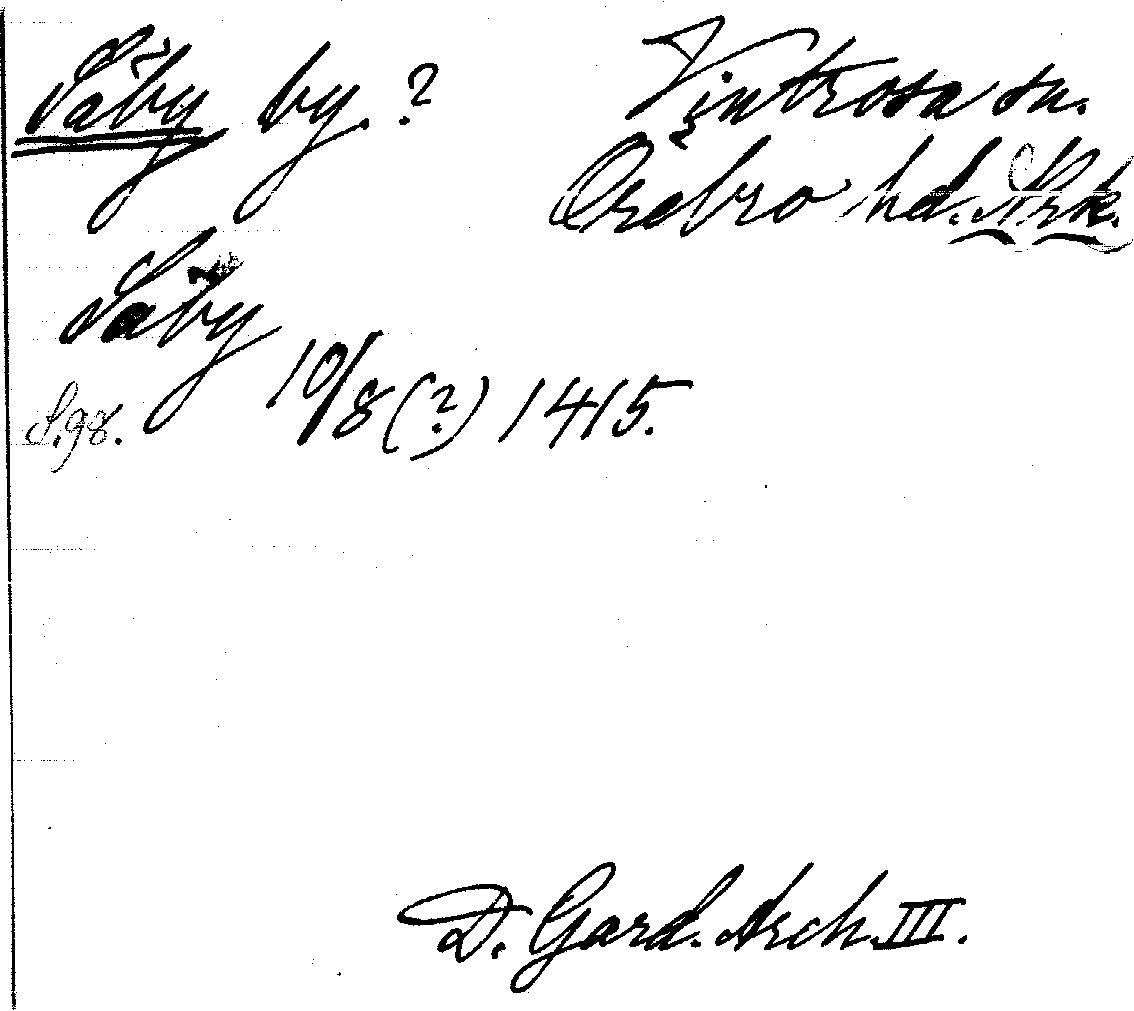 Säby by.? Vintrosa sn.
Örebro hd. Nrk.
Säby
10/8 (?) 1415.
S.98.
D. Gard. Arch. III.